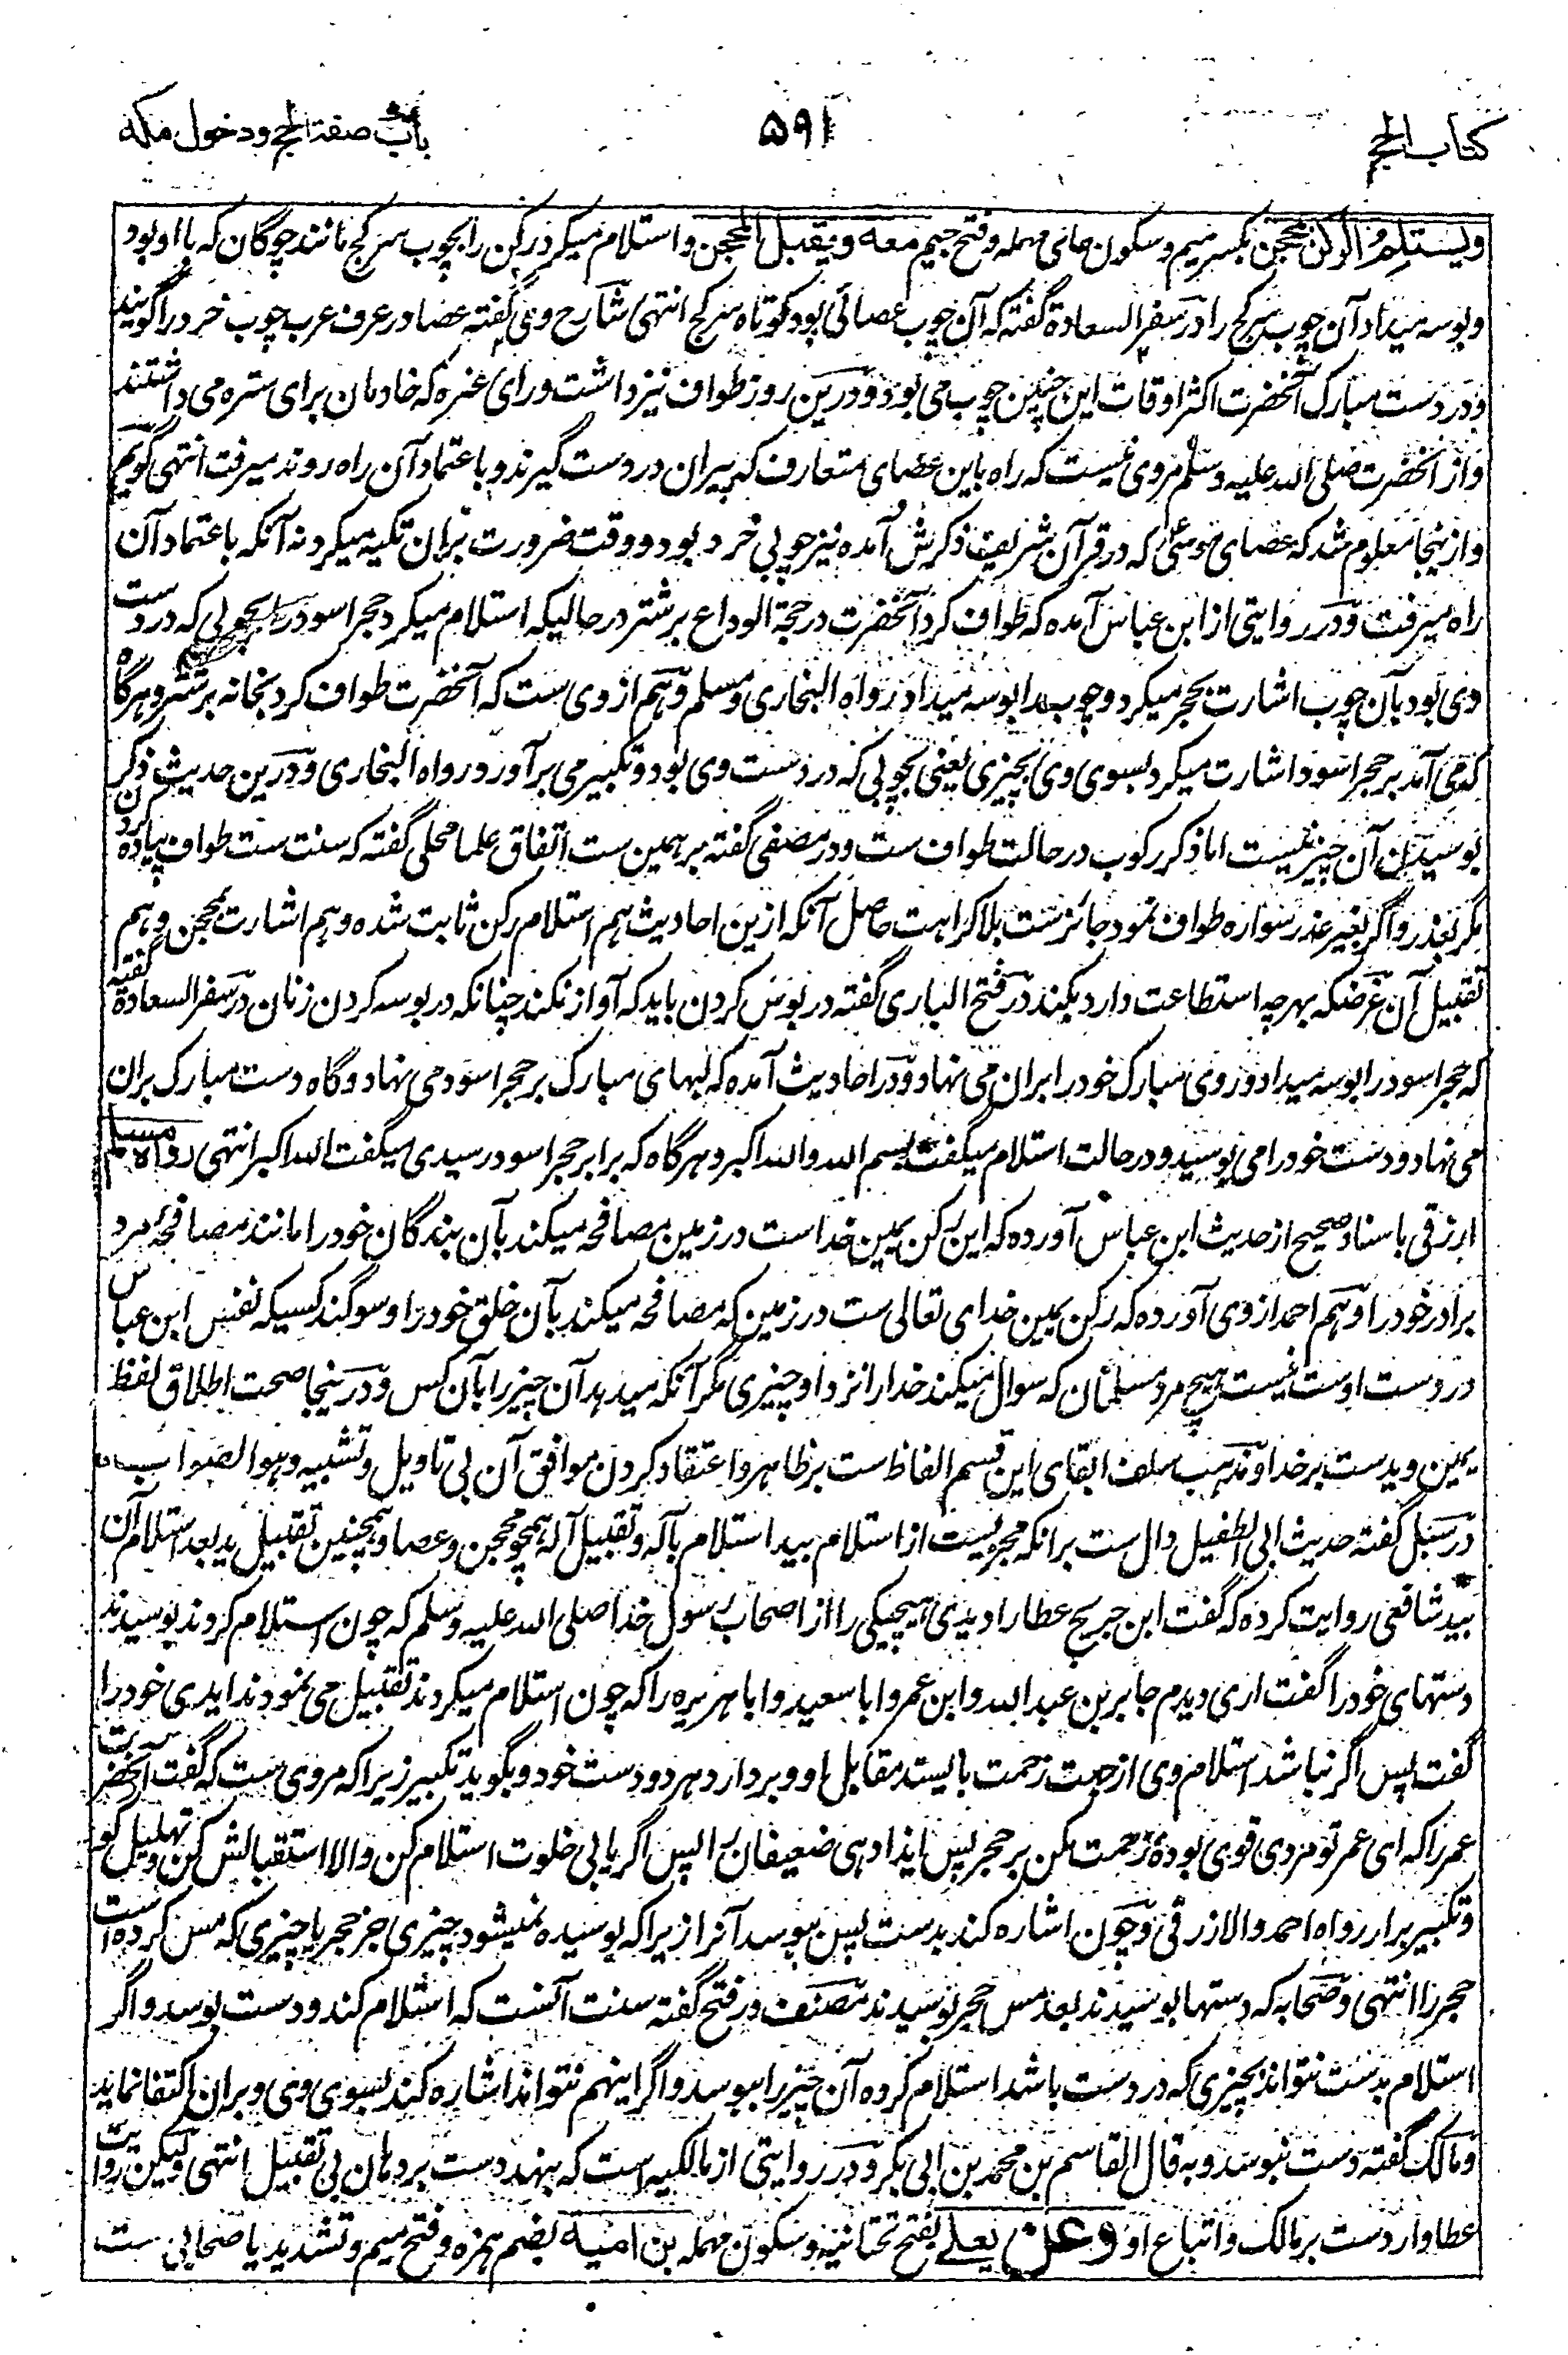 کتاب الحج
۵۹۱
باب صفة الحج ودخول مکه
ویستلم الرکن بمحجن بکسر میم وسکون حای مهمله وفتح جیم معه ویقبل المحجن واستلام میکرد رکن را بچوب سر کج مانند چوگان که با او بود
وبوسه میداد آن چوب سر کج را در سفر السعادة گفته که آن چوب عصائی بود کوتاه سر کج انتهی شارح وی گفته عصا در عرف عرب چوب خرد را گویند
ودر دست مبارک آنحضرت اکثر اوقات این چنین چوب می بود ودرین روز طواف نیز داشت ورای عنزه که خادمان برای ستره می داشتند
واز آنحضرت صلی الله علیه وسلم مروی نیست که راه باین عصای متعارف که پیران در دست گیرند وباعتماد آن راه روند میرفت انتهی گویم
وازینجا معلوم شد که عصای موسی که در قرآن شریف ذکرش آمده نیز چوبی خرد بود ووقت ضرورت بران تکیه میکرد نه آنکه باعتماد آن
راه میرفت ودر روایتی از ابن عباس آمده که طواف کرد آنحضرت در حجة الوداع بر شتر در حالیکه استلام میکرد حجر اسود را بچوبی که در دست
وی بود بآن چوب اشارت بحجر میکرد وچوب را بوسه میداد رواه البخاری ومسلم وهم از وی ست که آنحضرت طواف کرد بخانه بر شتر وهرگاه
که می آمد بر حجر اسود اشارت میکرد بسوی وی بچیزی یعنی بچوبی که در دست وی بود وتکبیر می برآورد رواه البخاری ودرین حدیث ذکر
بوسیدن آن چیز نیست اما ذکر رکوب در حالت طواف ست ودر مصفی گفته بر همین ست اتفاق علما محلی گفته که سنت ست طواف پیاده کردن
مگر بعذر واگر بغیر عذر سواره طواف نمود جائز ست بلا کراهت حاصل آنکه ازین احادیث هم استلام رکن ثابت شده وهم اشارت بمحجن وهم
تقبیل آن غرضکه بهرچه استطاعت دارد بکند در فتح الباری گفته در بوس کردن باید که آواز نکند چنانکه در بوسه کردن زنان در سفر السعادة گفته
که حجر اسود را بوسه میداد وروی مبارک خود را بران می نهاد ودر احادیث آمده که لبهای مبارک بر حجر اسود می نهاد وگاه دست مبارک بران
می نهاد ودست خود را می بوسید ودر حالت استلام میگفت بسم الله والله اکبر وهرگاه که برابر حجر اسود رسیدی میگفت الله اکبر انتهی رواه مسلم
ارزقی باسناد صحیح از حدیث ابن عباس آورده که این رکن یمین خدا ست در زمین مصافحه میکند بآن بندگان خود را مانند مصافحهٔ مرد
برادر خود را وهم احمد از وی آورده که رکن یمین خدای تعالی ست در زمین که مصافحه میکند بآن خلق خود را وسوگند کسیکه نفس ابن عباس
در دست اوست نیست هیچ مرد مسلمان که سوال میکند خدا را نزد او چیزی مگر آنکه میدهد آن چیز را بآن کس ودرینجا صحت اطلاق لفظ
یمین وید ست بر خدا ومذهب سلف ابقای این قسم الفاظ ست بر ظاهر واعتقاد کردن موافق آن بی تاویل وتشبیه وهو الصواب
در سبل گفته حدیث ابی الطفیل دال ست برانکه مجزیست از استلام بید استلام بآله وتقبیل آله همچو محجن وعصا وهمچنین تقبیل ید بعد استلام آن
بید شافعی روایت کرده که گفت ابن جریج عطا را دیدی هیچیکی را از اصحاب رسول خدا صلی الله علیه وسلم که چون استلام کردند بوسیدند
دستهای خود را گفت اری دیدم جابر بن عبد الله وابن عمر وابا سعید وابا هریره را که چون استلام میکردند تقبیل می نمودند ایدی خود را
گفت پس اگر نباشد استلام وی از جهت زحمت بایستد مقابل او وبردارد هر دو دست خود وبگوید تکبیر زیرا که مروی ست که گفت آنحضرت
عمر را که ای عمر تو مردی قوی بودهٔ زحمت مکن بر حجر پس ایذا دهی ضعیفان را پس اگر یابی خلوت استلام کن والا استقبالش کن وتهلیل گو
وتکبیر برار رواه احمد والازرقی وچون اشاره کند بدست پس ببوسد آنرا زیرا که بوسیده نمیشود چیزی جز حجر یا چیزی که مس کرده است
حجر را انتهی وصحابه که دستها بوسیدند بعد مس حجر بوسیدند مصنف در فتح گفته سنت آنست که استلام کند ودست بوسد واگر
استلام بدست نتواند بچیزی که در دست باشد استلام کرده آن چیز را ببوسد واگر اینهم نتواند اشاره کند بسوی وی وبران اکتفا نماید
ومالک گفته دست نبوسد وبه قال القاسم بن محمد بن ابی بکر ودر روایتی از مالکیه است که بنهد دست بر دهان بی تقبیل انتهی ولیکن روایت
عطا وارد ست بر مالک واتباع او وعن یعلے بفتح تحتانیه وسکون مهمله بن امیة بضم همزه وفتح میم وتشدید یا صحابی ست